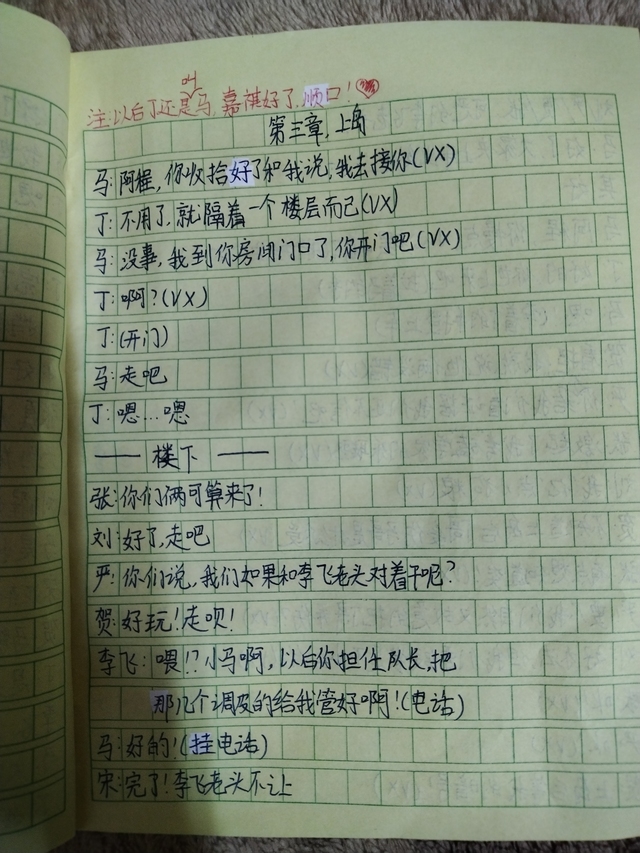 叫
注:以后丁还是马,嘉祺好了,顺口!
第三章,上岛
马:阿程,你收拾好了和我说,我去接你(VX)
丁:不用了,就隔着一个楼层而已(VX)
马:没事,我到你房间门口了,你开门吧(VX)
丁:啊?(VX)
丁:(开门)
马:走吧
丁:嗯...嗯
—— 楼下 ——
张:你们俩可算来了!
刘:好了,走吧
严:你们说,我们如果和李飞老头对着干呢?
贺:好玩!走呗!
李飞:喂!?小马啊,以后你担任队长,把
那几个调皮的给我管好啊!(电话)
马:好的!(挂电话)
宋:完了!李飞老头不让